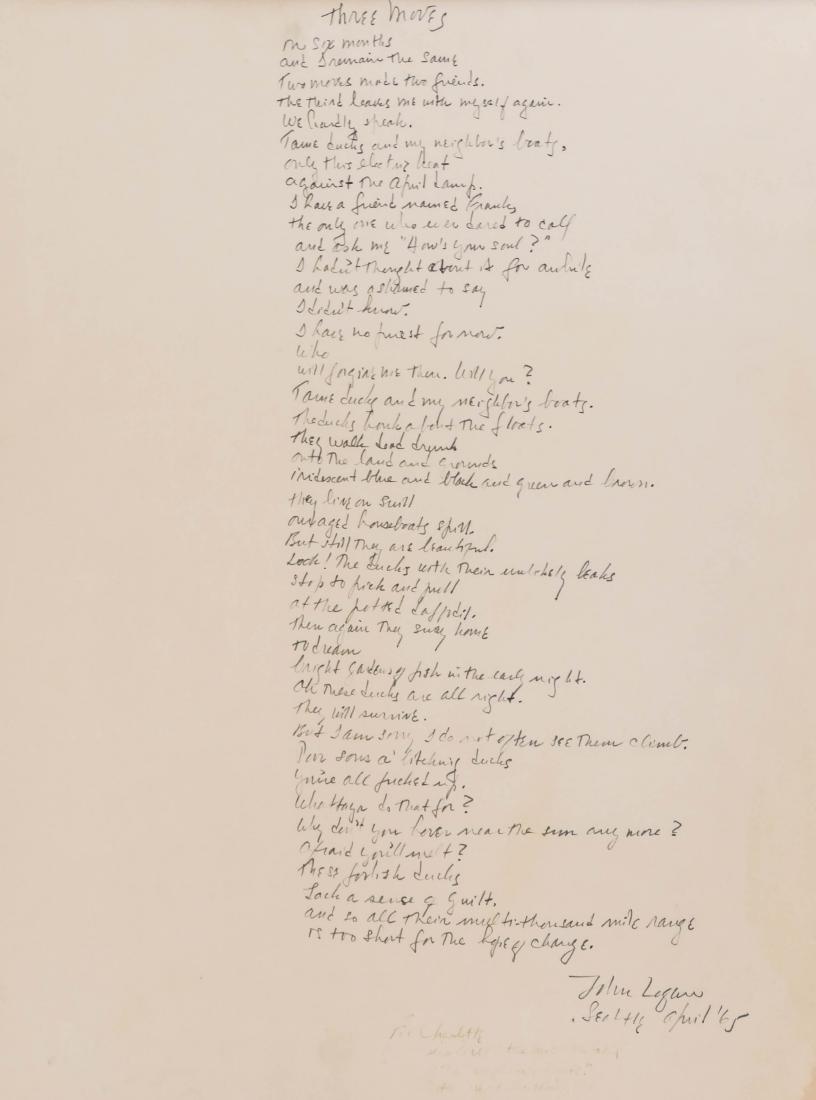 Three Moves
on six months
and I remain the same
Two moves made two friends.
The third leaves me with myself again.
We hardly speak.
Tame ducks and my neighbor's boats,
only this electric heat
against the April damp.
I have a friend named Frank,
the only one who ever dared to call
and ask me "How's your soul?"
I hadn't thought about it for awhile
and was ashamed to say
I didn't know.
I have no priest for now.
Who
will forgive me then. Will you?
Tame ducks and my neighbor's boats.
The ducks honk about the floats.
They walk dead drunk
onto the land and grounds
iridescent blue and black and green and brown.
They live on swill
our aged houseboats spill.
But still they are beautiful.
Look! The ducks with their unlikely beaks
stop to pick and pull
at the potted daffodil.
Then again they sway home
to dream
bright gardens of fish in the early night.
Oh these ducks are all right.
They will survive.
But I am sorry I do not often see them climb.
Poor sons a' bitching ducks
You're all fucked up.
Whattaya do that for?
Why don't you hover near the sun any more?
Afraid you'll melt?
These foolish ducks
Lack a sense of guilt.
and so all their multi-thousand mile range
is too short for the hope of change.
John Logan
Seattle April '65